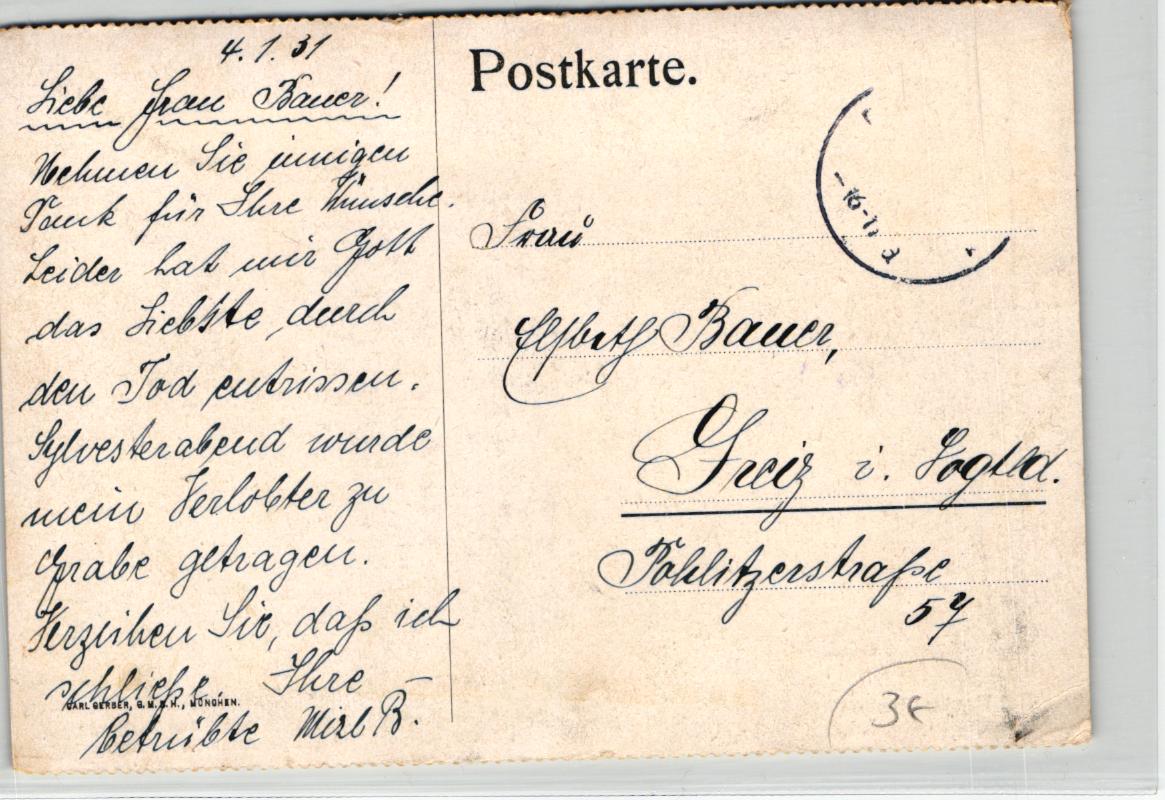 4.1.31
Liebe Frau Bauer!
Nehmen Sie innigen
Dank für Ihre Wünsche.
Leider hat mir Gott
das Liebste durch
den Tod entrissen.
Sylvesterabend wurde
mein Verlobter zu
Grabe getragen.
Verzeihen Sie, daß ich
schließe. Ihre
betrübte Mizl B.
CARL GERBER, G.M.B.H., MÜNCHEN.
Postkarte.
Frau
Elsbeth Bauer,
Greiz i. Vogtld.
Pohlitzerstraße
57